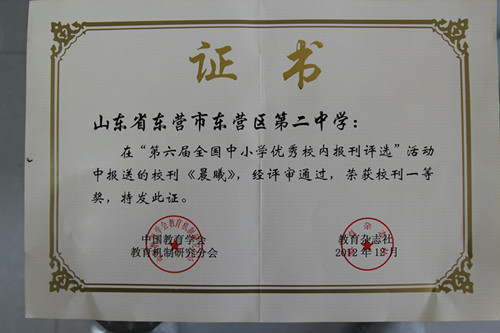 证书
山东省东营市东营区第二中学：
在“第六届全国中小学优秀校内报刊评选”活动
中报送的校刊《晨曦》，经评审通过，荣获校刊一等
奖，特发此证。
中国教育学会 教育杂志社
教育机制研究分会 2012年12月